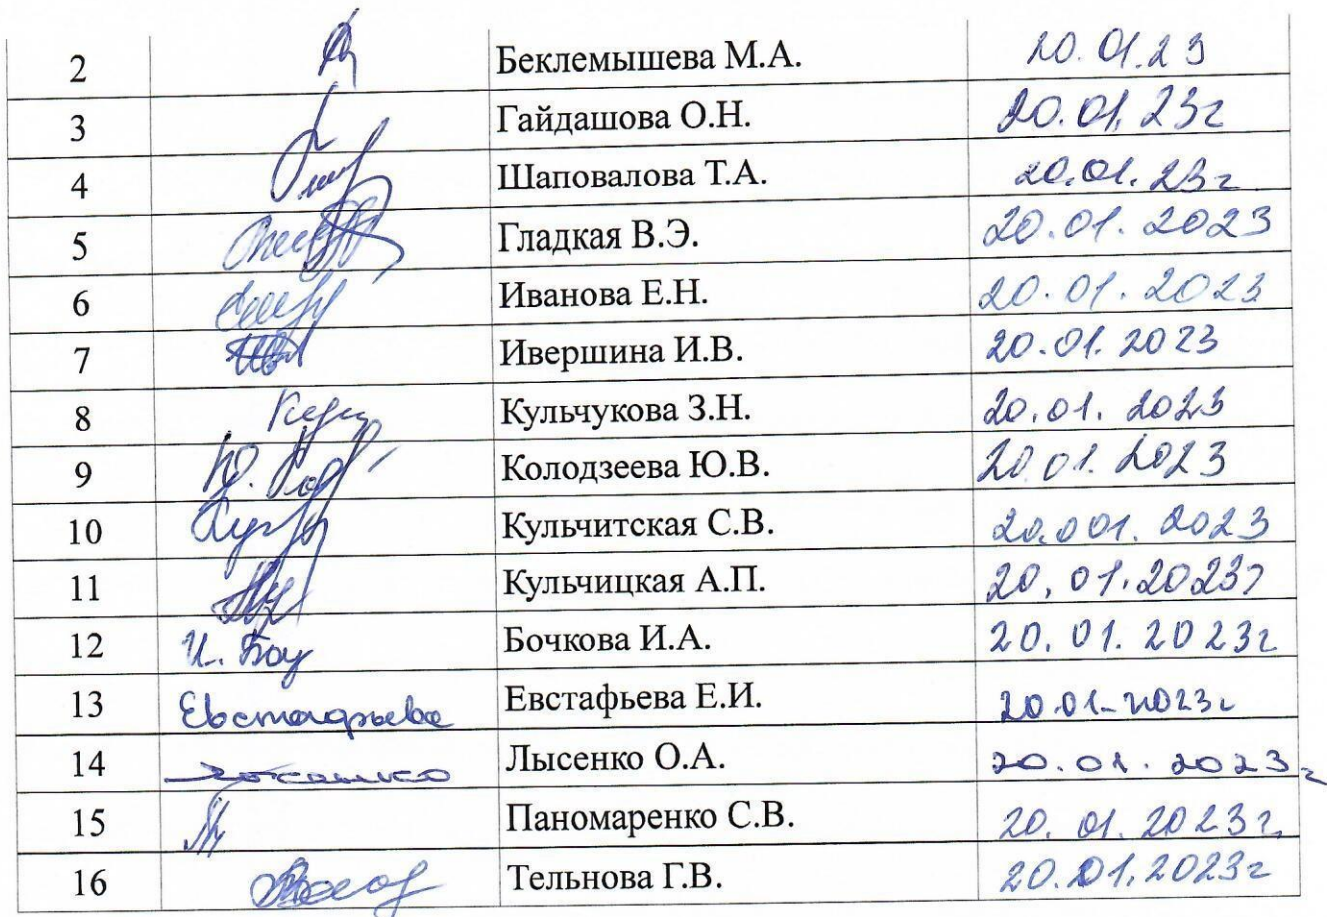 2 Беклемышева М.А. 20.01.23
3 Гайдашова О.Н. 20.01.23г
4 Шаповалова Т.А. 20.01.23г
5 Гладкая В.Э. 20.01.2023
6 Иванова Е.Н. 20.01.2023
7 Ивершина И.В. 20.01.2023
8 Кульчукова З.Н. 20.01.2023
9 Колодзеева Ю.В. 20.01.2023
10 Кульчитская С.В. 20.001.2023
11 Кульчицкая А.П. 20.01.2023г
12 И. Боч Бочкова И.А. 20.01.2023г
13 Евстафьева Евстафьева Е.И. 20.01-2023г
14 Лысенко О.А. 20.01.2023г
15 Паномаренко С.В. 20.01.2023г
16 Тельнова Г.В. 20.01.2023г